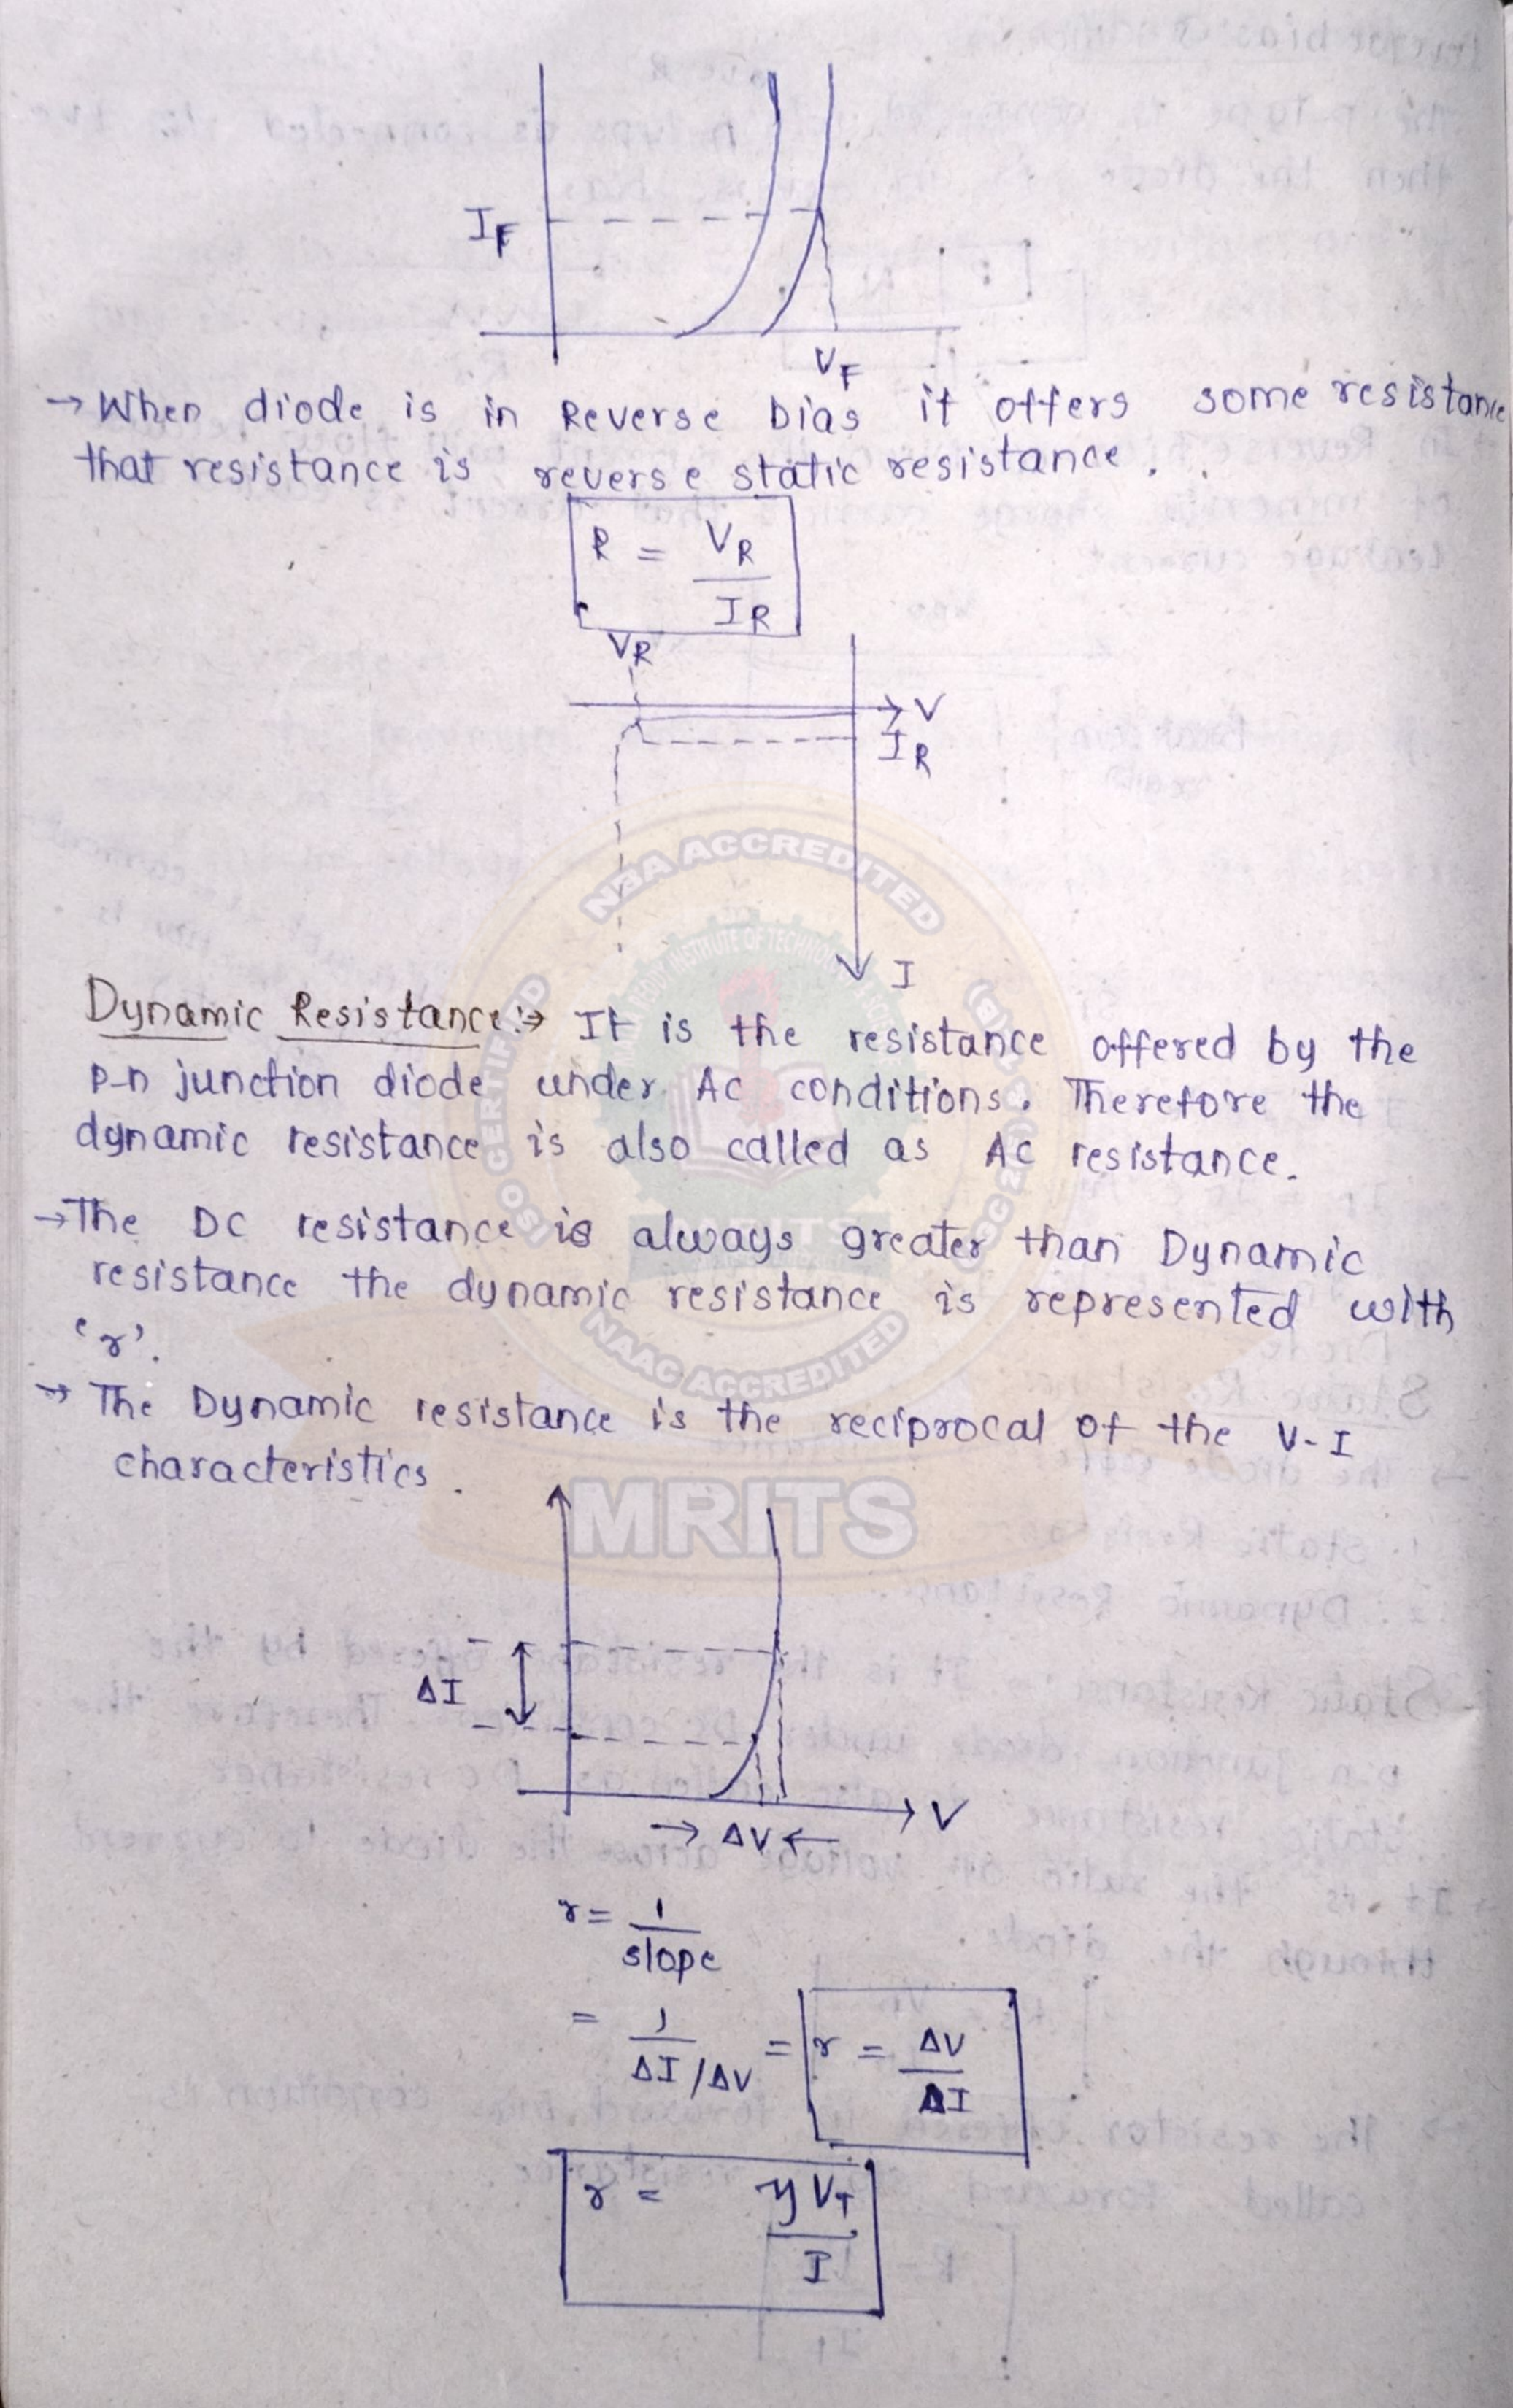 I_F
V_F
→ When diode is in Reverse bias it offers some resistance
that resistance is reverse static resistance.
R = V_R / I_R
V_R
V
I_R
I
NBA ACCREDITED
Dynamic Resistance:→ It is the resistance offered by the
p-n junction diode under Ac conditions. Therefore the
dynamic resistance is also called as Ac resistance.
→ The DC resistance is always greater than Dynamic
resistance the dynamic resistance is represented with
'r'.
NAAC ACCREDITED
→ The Dynamic resistance is the reciprocal of the V-I
characteristics.
MRITS
ΔI
V
→ ΔV ←
r = 1 / slope
= 1 / ΔI/ΔV = r = ΔV / ΔI
r = η V_T / I